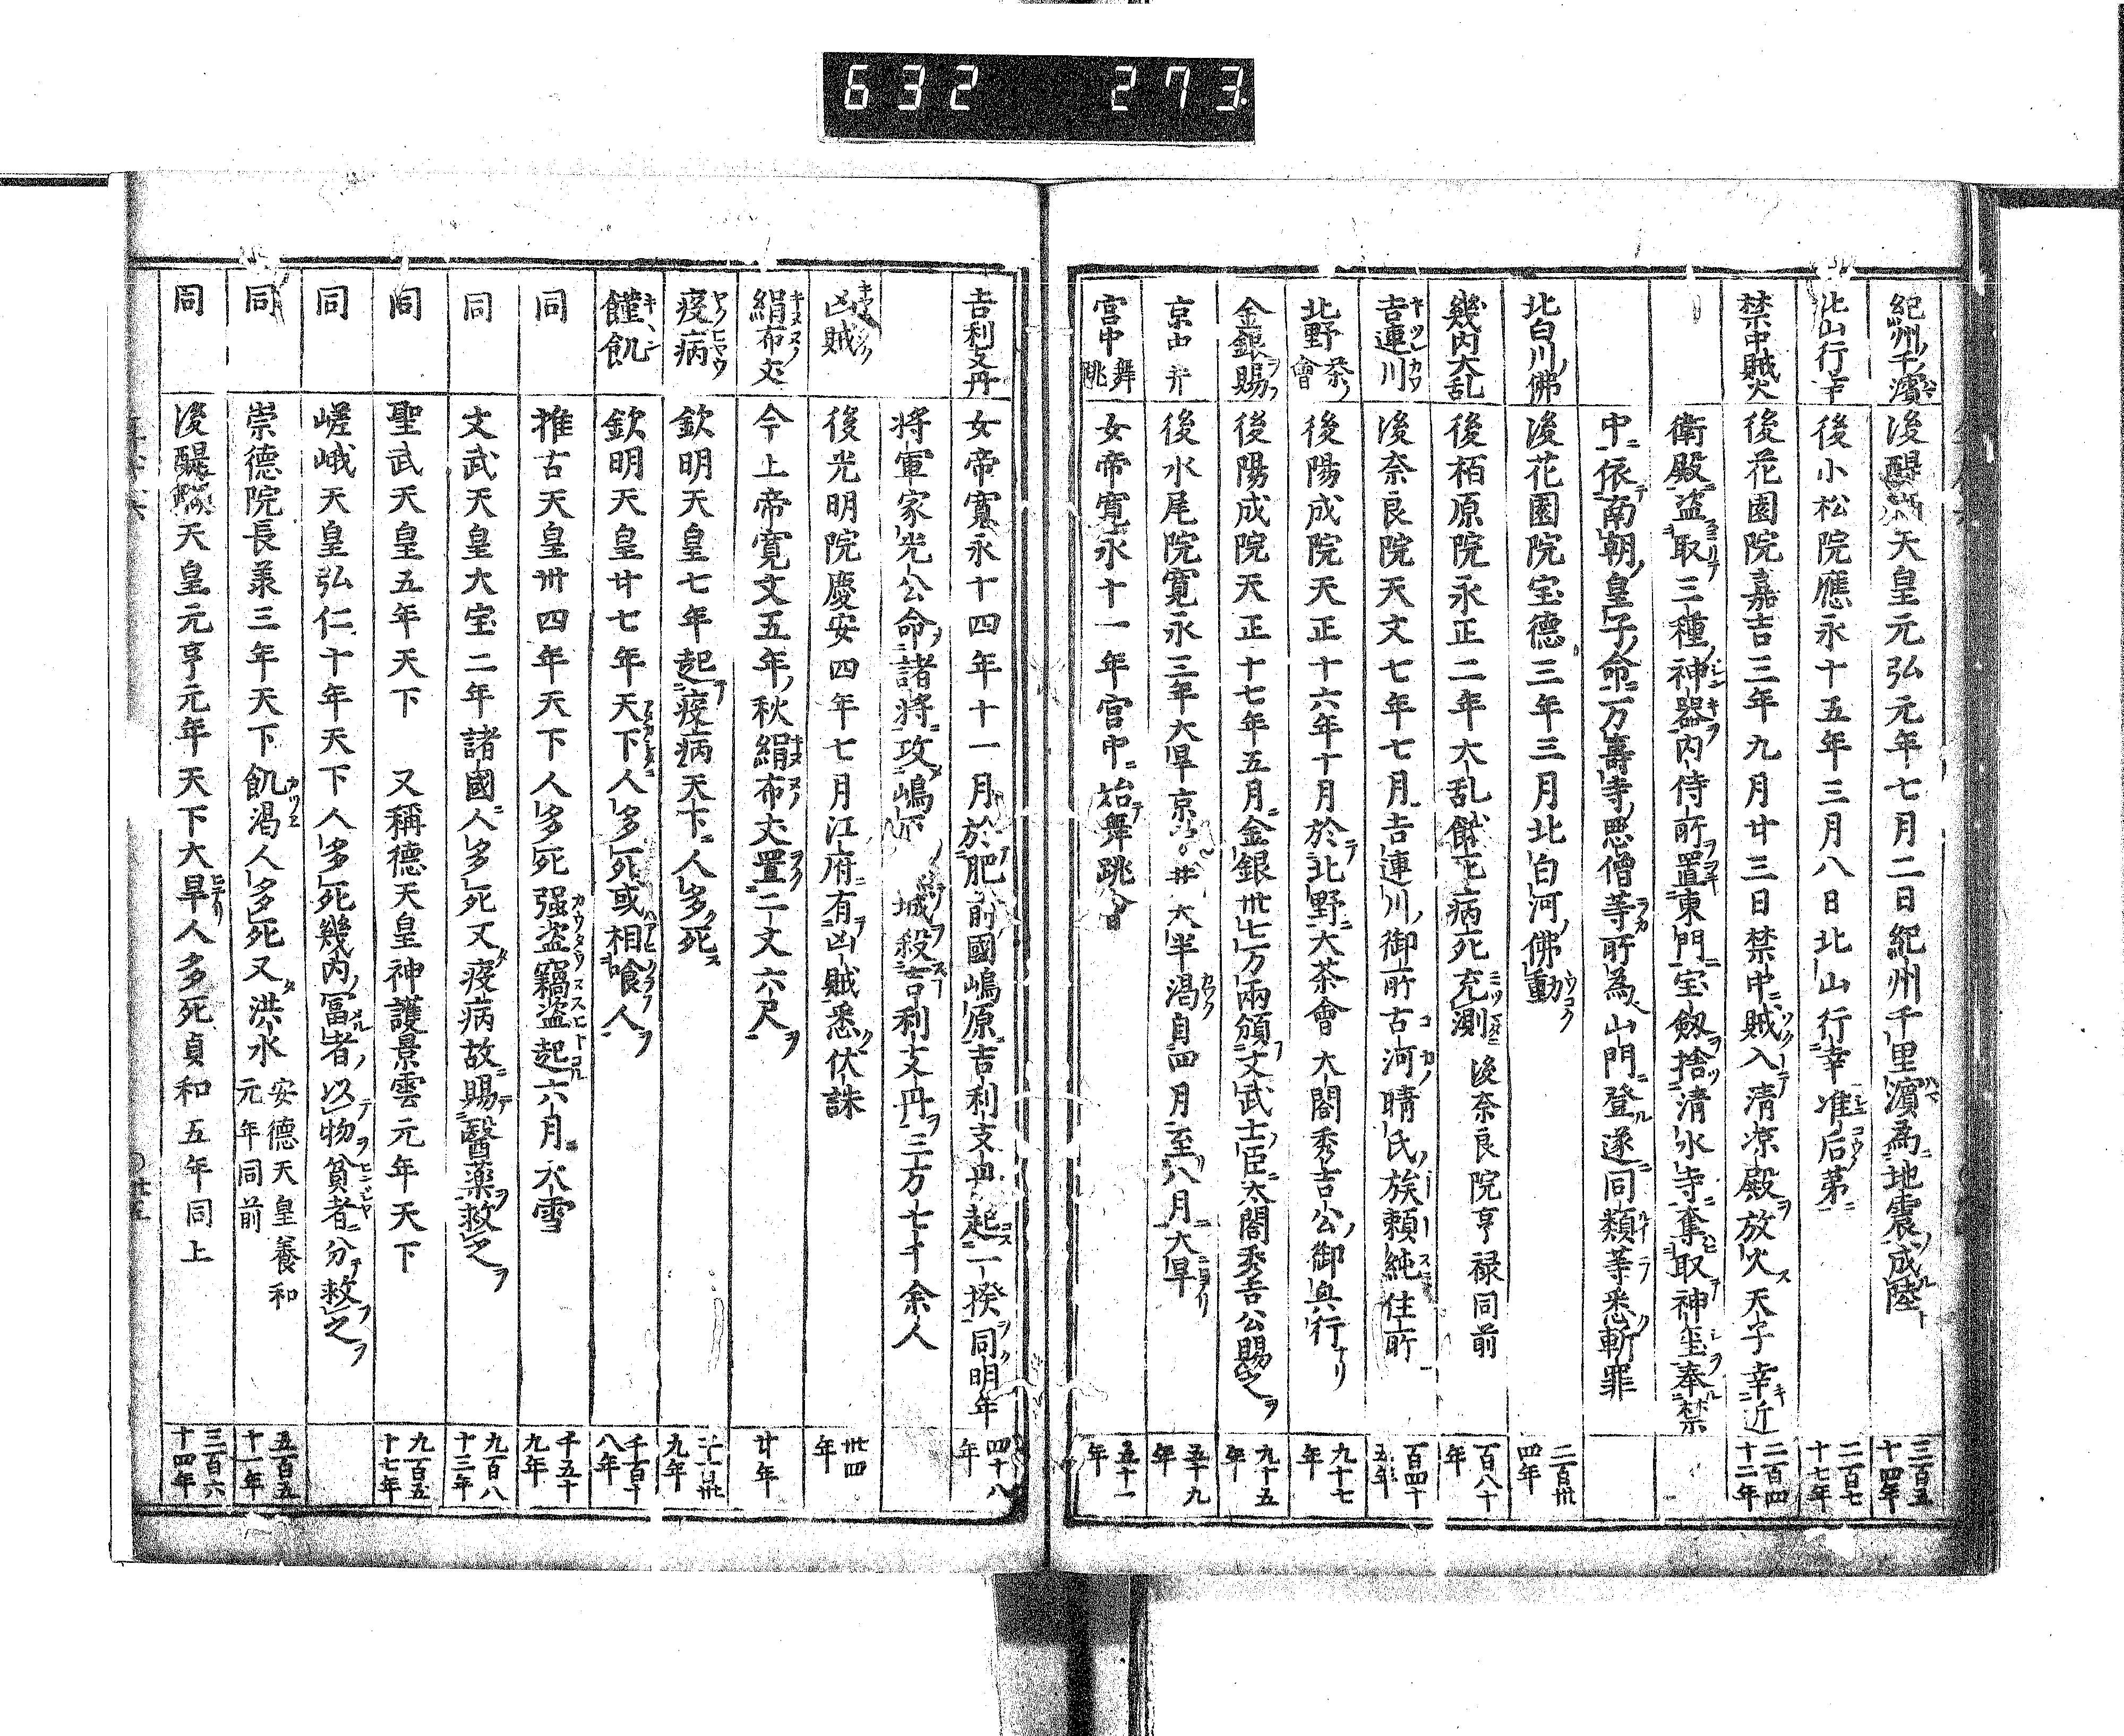 632 273
紀州千濱 後醍醐天皇元弘元年七月二日紀州千里濱為地震成陸 三百五十四年
北山行幸 後小松院應永十五年三月八日北山行幸准后第 二百七十七年
禁中賊火 後花園院嘉吉三年九月廿三日禁中賊入清凉殿放火天子幸近 二百四十二年
衛殿盗取三種神器内侍所置東門宝劔捨清水寺奪取神璽奉禁
中依南朝皇子命万壽寺悪僧等所為山門登遂同類等悉斬罪
北白川佛 後花園院宝德三年三月北白河佛動 二百卅四年
幾内大乱 後栢原院永正二年大乱餓死病死充測 後奈良院亨禄同前 百八十年
吉連川 後奈良院天文七年七月吉連川御所古河晴氏族頼純住所 百四十五年
北野茶會 後陽成院天正十六年十月於北野大茶會大閤秀吉公御興行 九十七年
金銀賜 後陽成院天正十七年五月金銀卅七万兩頒文武士臣太閤秀吉公賜之 九十五年
京中井 後水尾院寛永三年大旱京中井大半渇自四月至八月大旱 五十九年
宮中舞跳 女帝寛永十一年宮中始舞跳 五十一年
吉利支丹 女帝寛永十四年十一月於肥前國嶋原吉利支丹起一揆同明年 四十八年
將軍家光公命諸將攻嶋原城殺吉利支丹三万七千余人
凶賊 後光明院慶安四年七月江府有凶賊悉伏誅 卅四年
絹布丈 今上帝寛文五年秋絹布丈置二丈六尺 廿年
疫病 欽明天皇七年起疫病天下人多死 九年
饉飢 欽明天皇廿七年天下人多死或相喰人 千百十八年
同 推古天皇卅四年天下人多死强盗竊盗起六月大雪 千五十九年
同 文武天皇大宝二年諸國人多死又疫病故賜醫薬救之 九百八十三年
同 聖武天皇五年天下 又稱德天皇神護景雲元年天下 九百五十七年
同 嵯峨天皇弘仁十年天下人多死幾内冨者以物貧者分救之
同 崇德院長羕三年天下飢渇人多死又洪水 安德天皇養和元年同前 五百五十一年
同 後醍醐天皇元亨元年天下大旱人多死貞和五年同上 三百六十四年